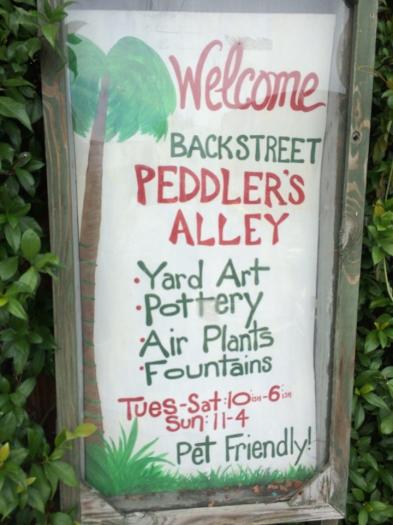 Welcome
BACKSTREET
PEDDLER'S
ALLEY
• Yard Art
• Pottery
• Air Plants
• Fountains
Tues-Sat: 10ish-6ish
Sun: 11-4
Pet Friendly!